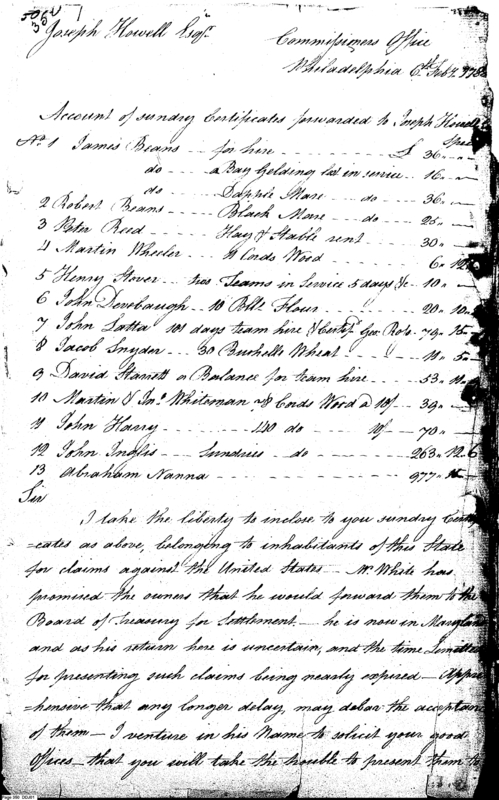 Joseph Howell Esqr.
Commissioners Office
Philadelphia 6th Feby. 178
Account of sundry Certificates forwarded to Joseph Howell
No. 1 James Beans for hire £ 36 " " —
do a Bay Gelding lost in service 16 " —
do Dapple Mare do 36 " —
2 Robert Beans Black Mare do 25 " —
3 Peter Reed Hay & Stable rent 30 " —
4 Martin Wheeler 4 Cords Wood 6 " 12
5 Henry Stover two Teams in Service 5 days &c 10 " —
6 John Devebaugh 10 Bllz Flour 20 " 10
7 John Latta 101 days team hire & Certifd. Geo. Ross 79 " 15
8 Jacob Snyder 30 Bushells Wheat 11 " 5
9 David Starrett a Balance for team hire 53 " 11
10 Martin & Jno. Whiteman 78 Cords Wood @ 10/ 39 " —
11 John Harry 140 do 10/ 70 " —
12 John Inglis Sundries do 263 " 12 " 6
13 Abraham Nanna 977 " 15
Sir
I take the liberty to inclose to you sundry Certifi
=cates as above, belonging to inhabitants of this State
for claims against the United States — Mr. White has
promised the owners that he would forward them to the
Board of Treasury for Settlement — he is now in Maryland
and as his return here is uncertain, and the time limitted
for presenting such claims being nearly expired — Appre
=hensive that any longer delay, may debar the acceptance
of them — I venture in his Name to solicit your good
Offices — that you will take the trouble to present them to
Page 389 DDJ01